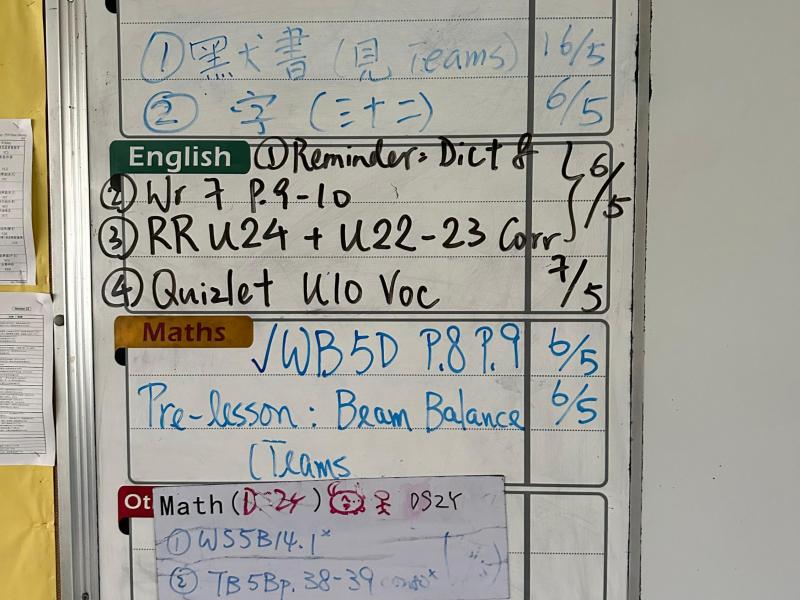 ① 黑犬書 (見 Teams) 16/5
② 字 (三十二) 6/5
English ① Reminder: Dict 8 6/5
② Wr 7 P.9-10
③ RR U24 + U22-23 Corr
④ Quizlet U10 Voc 7/5
Maths √WB5D P.8 P.9 6/5
Pre-lesson: Beam Balance 6/5
(Teams
Ot
Math (DS24) DS24
① WS5B14.1*
② TB5Bp.38-39